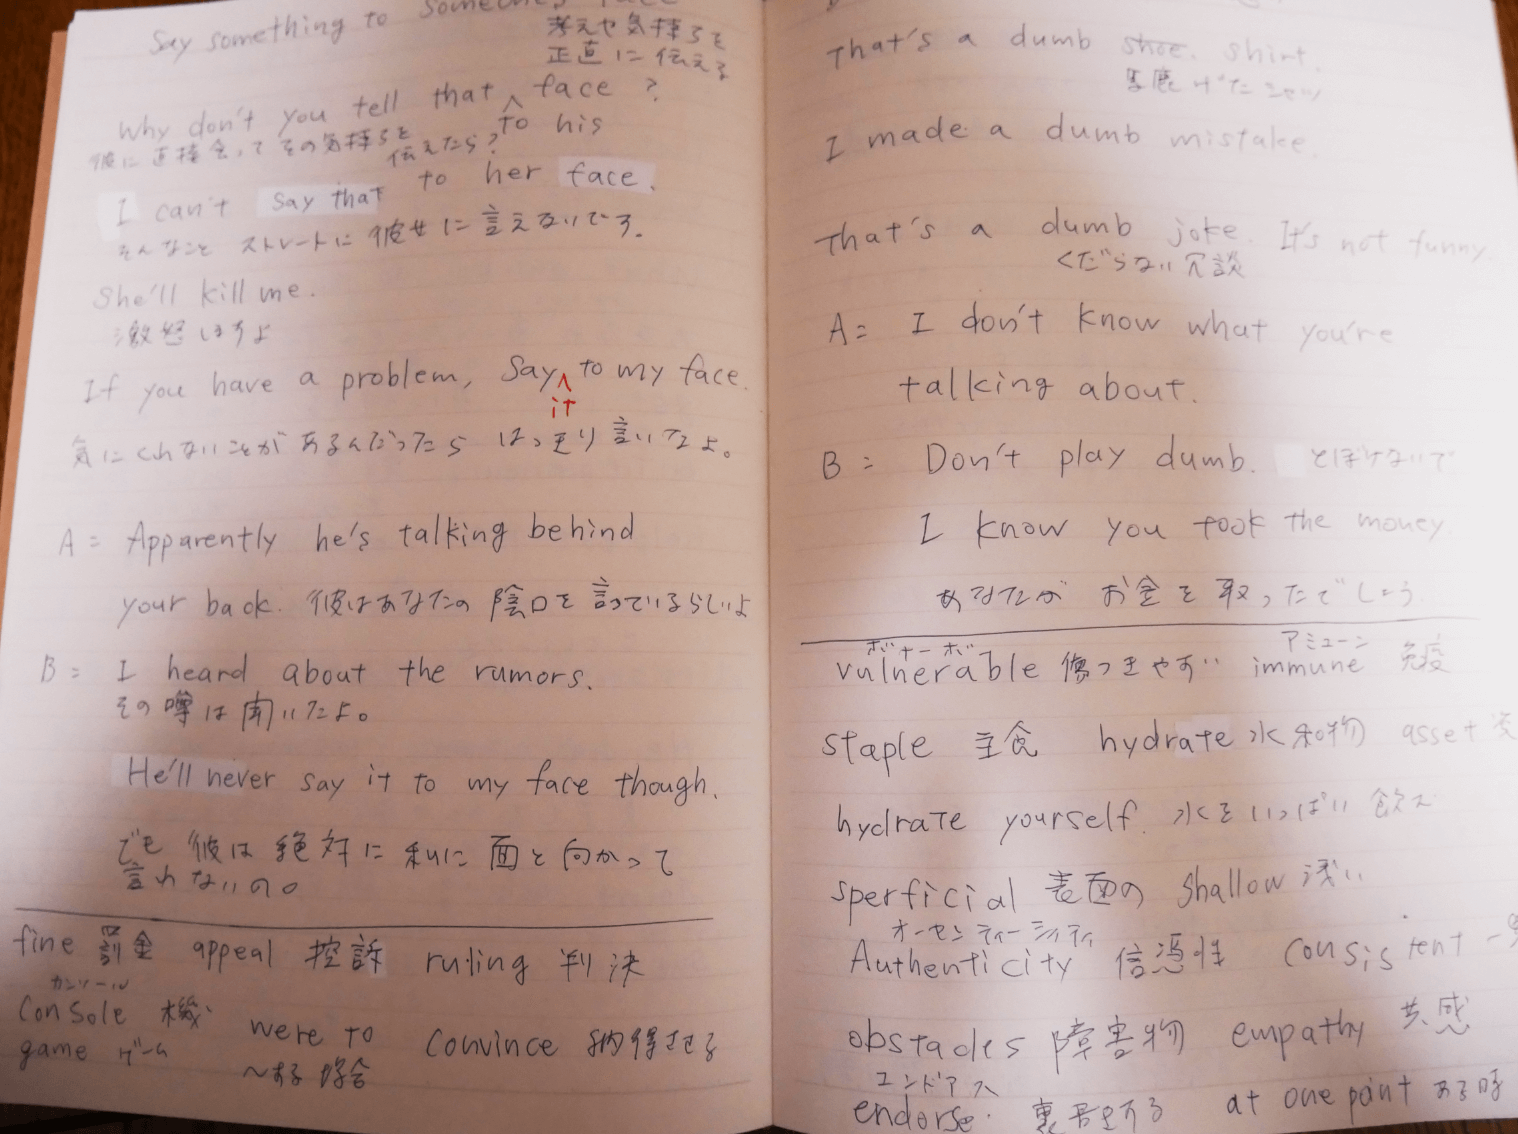 Say something to someone's face
考えや気持ちを
正直に伝える
Why don't you tell that ^ face ?
to his
彼に直接会ってその気持ちを
伝えたら?
I can't say that to her face.
そんなこと ストレートに 彼女に 言えないでう.
She'll kill me.
激怒ほすよ
If you have a problem, Say ^ to my face.
it
気にくわないことが あるんだったら はっきり 言いなよ。
A = Apparently he's talking behind
your back. 彼はあなたの 陰口を 言っているらしいよ
B = I heard about the rumors.
その噂は聞いたよ。
He'll never say it to my face though.
でも 彼は 絶対に 私に 面と向かって
言わないの。
fine 罰金 appeal 控訴 ruling 判決
カンソール
console 機 were to convince 納得させる
game ゲーム 〜ある場合
That's a dumb shoe. shirt.
馬鹿げたシャツ
I made a dumb mistake.
That's a dumb joke. It's not funny
くだらない冗談
A = I don't know what you're
talking about.
B = Don't play dumb. とぼけないで
I know you took the money.
あなたが お金を 取ったでしょう
ボナーボー アミューン
vulnerable 傷つきやすい immune 免疫
staple 主食 hydrate 水和物 asset
hydrate yourself. 水をいっぱい 飲む
sperficial 表面の shallow 浅い
オーセンティーシィティ
Authenticity 信憑性 consistent 一
obstacles 障害物 empathy 共感
エンドアス
endorse. 裏書をする at one point ある時